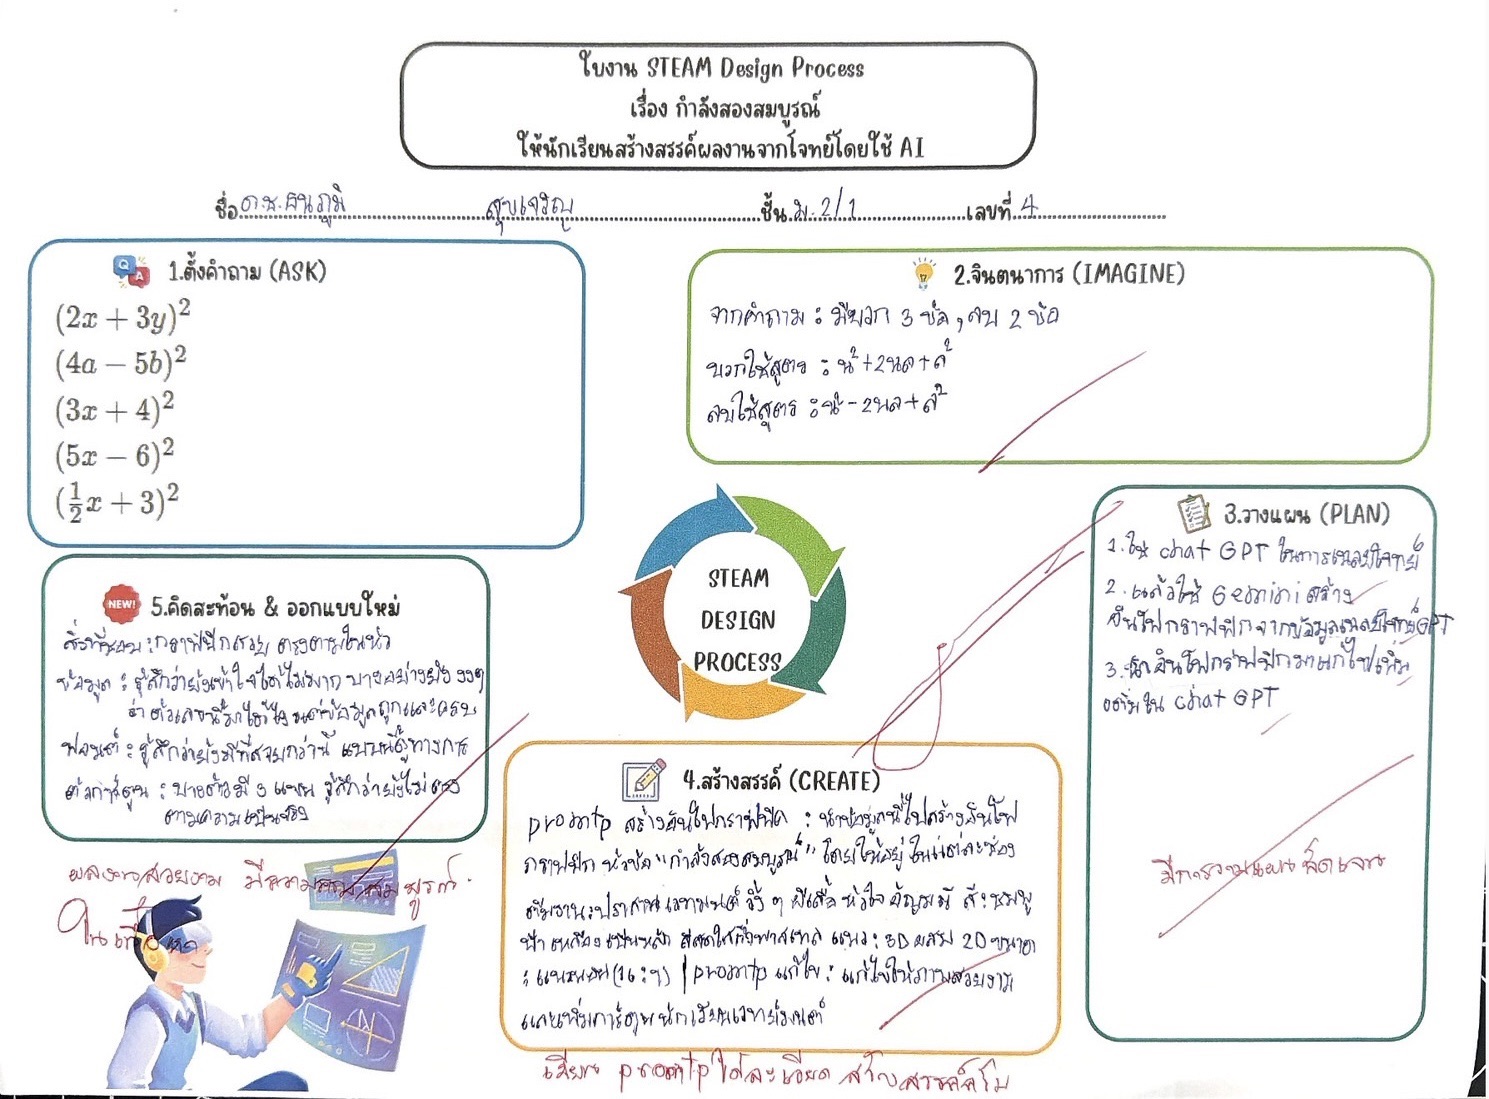 ใบงาน STEAM Design Process
เรื่อง กำลังสองสมบูรณ์
ให้นักเรียนสร้างสรรค์ผลงานจากโจทย์โดยใช้ AI
ชื่อ ด.ช.ธนภูมิ สุขเจริญ ชั้น ม.2/1 เลขที่ 4
1.ตั้งคำถาม (ASK)
(2x + 3y)²
(4a − 5b)²
(3x + 4)²
(5x − 6)²
(½x + 3)²
2.จินตนาการ (IMAGINE)
จากคำถาม : มีบวก 3 ข้อ, ลบ 2 ข้อ
บวกใช้สูตร : น²+2นล+ล²
ลบใช้สูตร : น²-2นล+ล²
STEAM
DESIGN
PROCESS
3.วางแผน (PLAN)
1.ใช้ chat GPT ในการเฉลยโจทย์
2.แล้วใช้ Gemini สร้าง
อินโฟกราฟฟิกจากข้อมูลเฉลยโจทย์ GPT
3.นำอินโฟกราฟฟิกมาแก้ไขเพิ่ม
เติมใน chat GPT
มีการวางแผนชัดเจน
4.สร้างสรรค์ (CREATE)
promtp สร้างอินโฟกราฟฟิก : นำข้อมูลนี้ไปสร้างอินโฟ
กราฟฟิก หัวข้อ "กำลังสองสมบูรณ์" โดยให้อยู่ในแต่ละช่อง
ปราสาทเวทมนต์ ผีเสื้อ หัวใจ อัญมณี สี:ชมพู
ฟ้า เหลือง เป็นหลัก แนว: 3D ผสม 2D ขนาด
: แนวนอน(16:9) | promtp แก้ไข : แก้ไขให้ภาพสวยงาม
และเพิ่มการ์ตูนนักเรียนเวทย์มนต์
เขียน promtp ได้ละเอียด สร้างสรรค์
5.คิดสะท้อน & ออกแบบใหม่
NEW!
สิ่งที่ชอบ : กราฟฟิกสวย ตรงตามในหัว
ข้อมูล : รู้สึกว่ายังเข้าใจได้ไม่มาก บางอย่างยัง งงๆ
ว่าตัวเลขนี้มาได้ไง แต่ข้อมูลถูกและครบ
ฟอนต์ : รู้สึกว่ายังมีที่สวยกว่านี้ แบบนี้ดูทางการ
ตัวการ์ตูน : บางตัวมี 3 แขน รู้สึกว่ายังไม่ตรง
ตามความเป็นจริง
ผลงานสวยงาม มีความสมบูรณ์
ในเนื้อหา